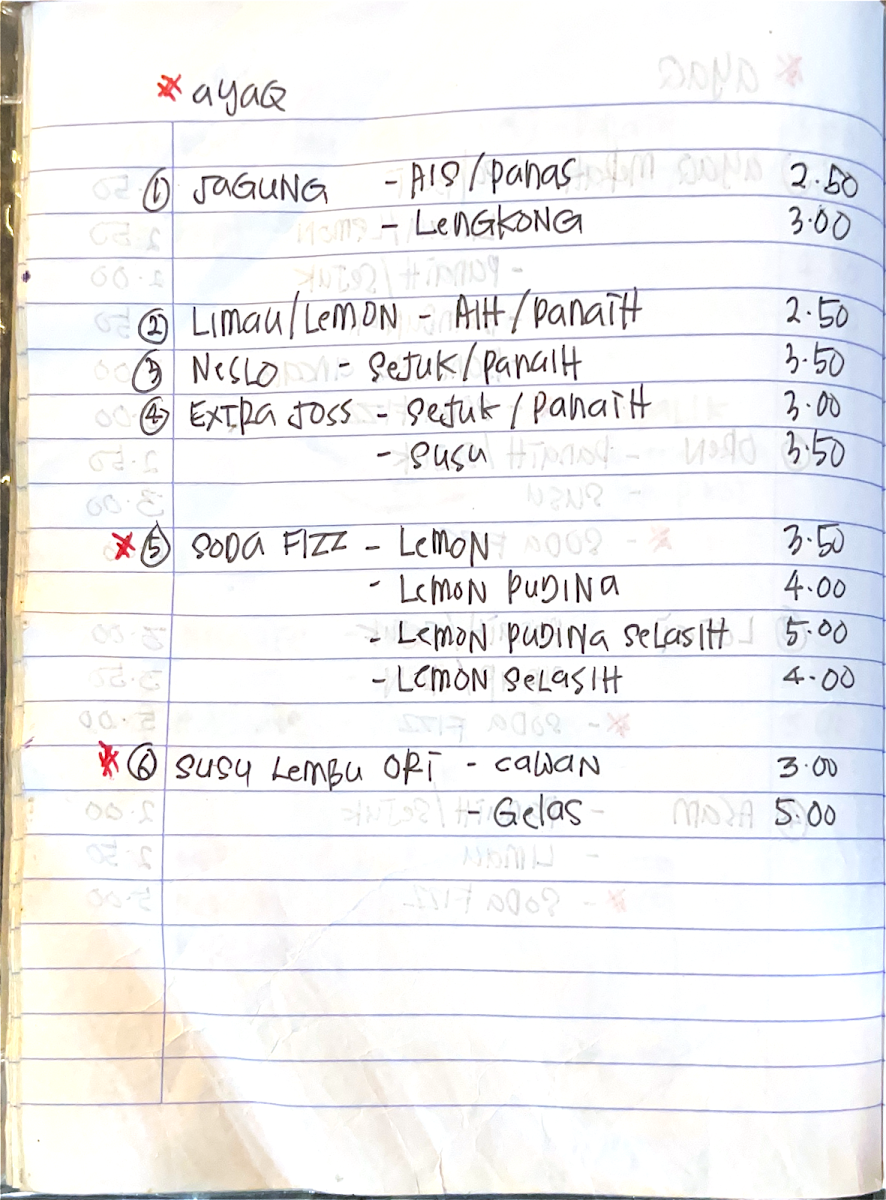 * AYAQ
① JAGUNG - AIS/PANAS 2.50
- LENGKONG 3.00
② LIMAU/LEMON - AIH/PANAIH 2.50
③ NESLO - SEJUK/PANAIH 3.50
④ EXTRA JOSS - SEJUK/PANAIH 3.00
- SUSU 3.50
* ⑤ SODA FIZZ - LEMON 3.50
- LEMON PUDINA 4.00
- LEMON PUDINA SELASIH 5.00
- LEMON SELASIH 4.00
* ⑥ SUSU LEMBU ORI - CAWAN 3.00
- GELAS 5.00